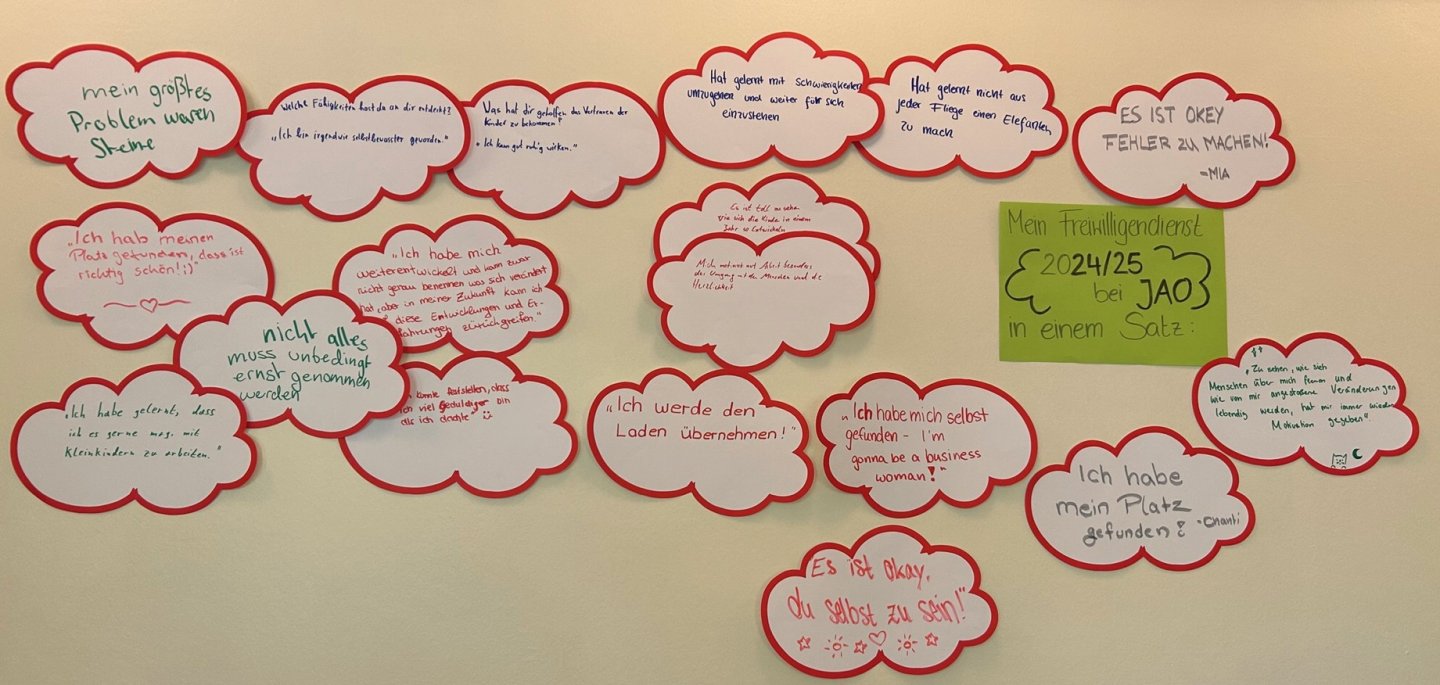 mein größtes
Problem waren
Steine
Welche Fähigkeiten hast du an dir entdeckt?
„Ich bin irgendwie selbstbewusster geworden."
Was hat dir geholfen das Vertrauen der
Kinder zu bekommen?
"Ich kann gut ruhig wirken."
Hat gelernt mit Schwierigkeiten
umzugehen und weiter für sich
einzustehen
Hat gelernt nicht aus
jeder Fliege einen Elefanten
zu mach
ES IST OKEY
FEHLER ZU MACHEN!
-MIA
„Ich hab meinen
Platz gefunden, dass ist
richtig schön!;)"
„Ich habe mich
weiterentwickelt und kann zwar
nicht genau benennen was sich verändert
hat, aber in meiner Zukunft kann ich
diese Entwicklungen und Er-
fahrungen zurückgreifen."
Es ist toll zu sehen
wie sich die Kinder in einem
Jahr so Entwickeln
Mich motiviert auf Arbeit besonders
der Umgang mit den Menschen und die
Herzlichkeit
Mein Freiwilligendienst
2024/25
bei JAO
in einem Satz:
nicht alles
muss unbedingt
ernst genommen
werden
„Ich habe gelernt, dass
ich es gerne mag, mit
Kleinkindern zu arbeiten."
konnte feststellen, dass
ich viel geduldiger bin
als ich dachte" :)
„Ich werde den
Laden übernehmen!"
„Ich habe mich selbst
gefunden - I'm
gonna be a business
woman!"
„Zu sehen, wie sich
Menschen über mich freuen und
wie von mir angestoßene Veränderungen
lebendig werden, hat mir immer wieder
Motivation gegeben".
Ich habe
mein Platz
gefunden
-Chanti
Es ist okay,
du selbst zu sein!"